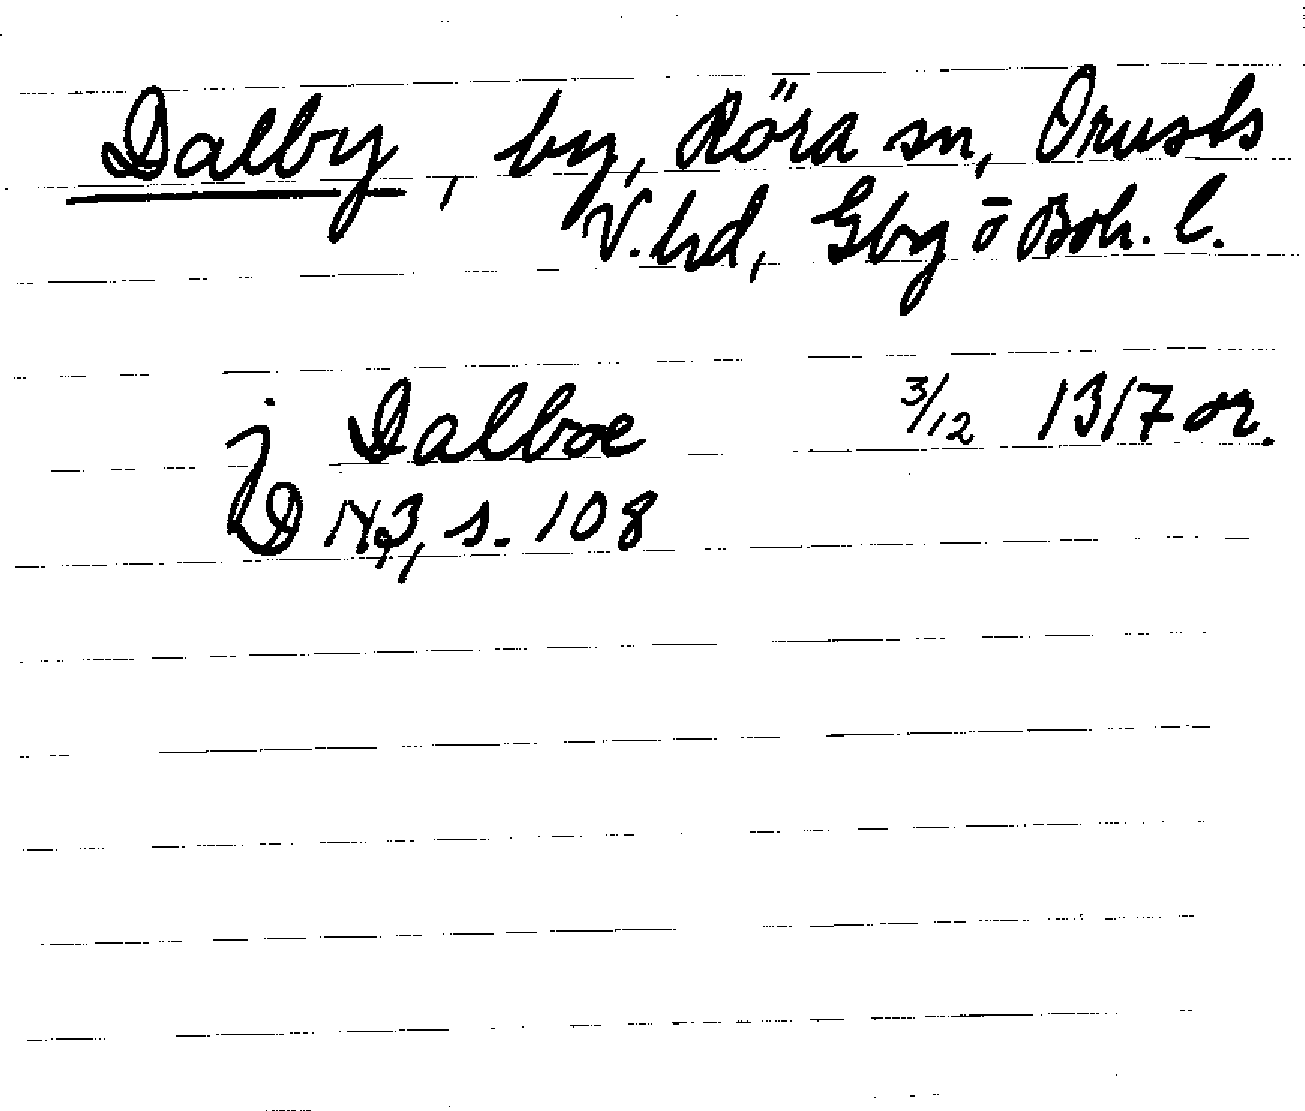 Dalby, by, Röra sn, Orusts
V. hd, Gbg o Boh. l.
j Dalbœ 3/12 1317 or.
DN 3, s. 108